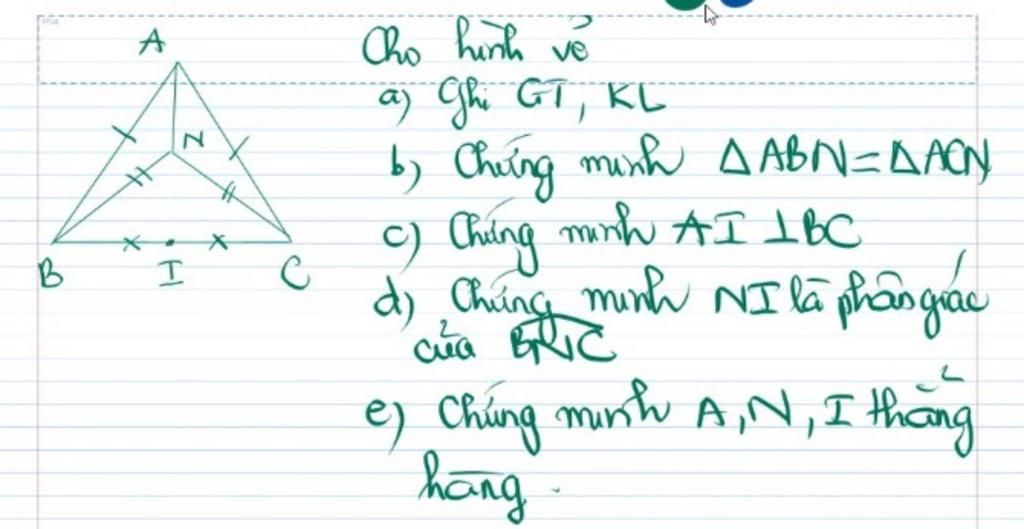 TITLE
A
N
B
I
C
Cho hình vẽ
a) Ghi GT, KL
b) Chứng minh ΔABN=ΔACN
c) Chứng minh AI ⊥BC
d) Chứng minh NI là phân giác
của BNC
e) Chứng minh A, N, I thẳng
hàng.